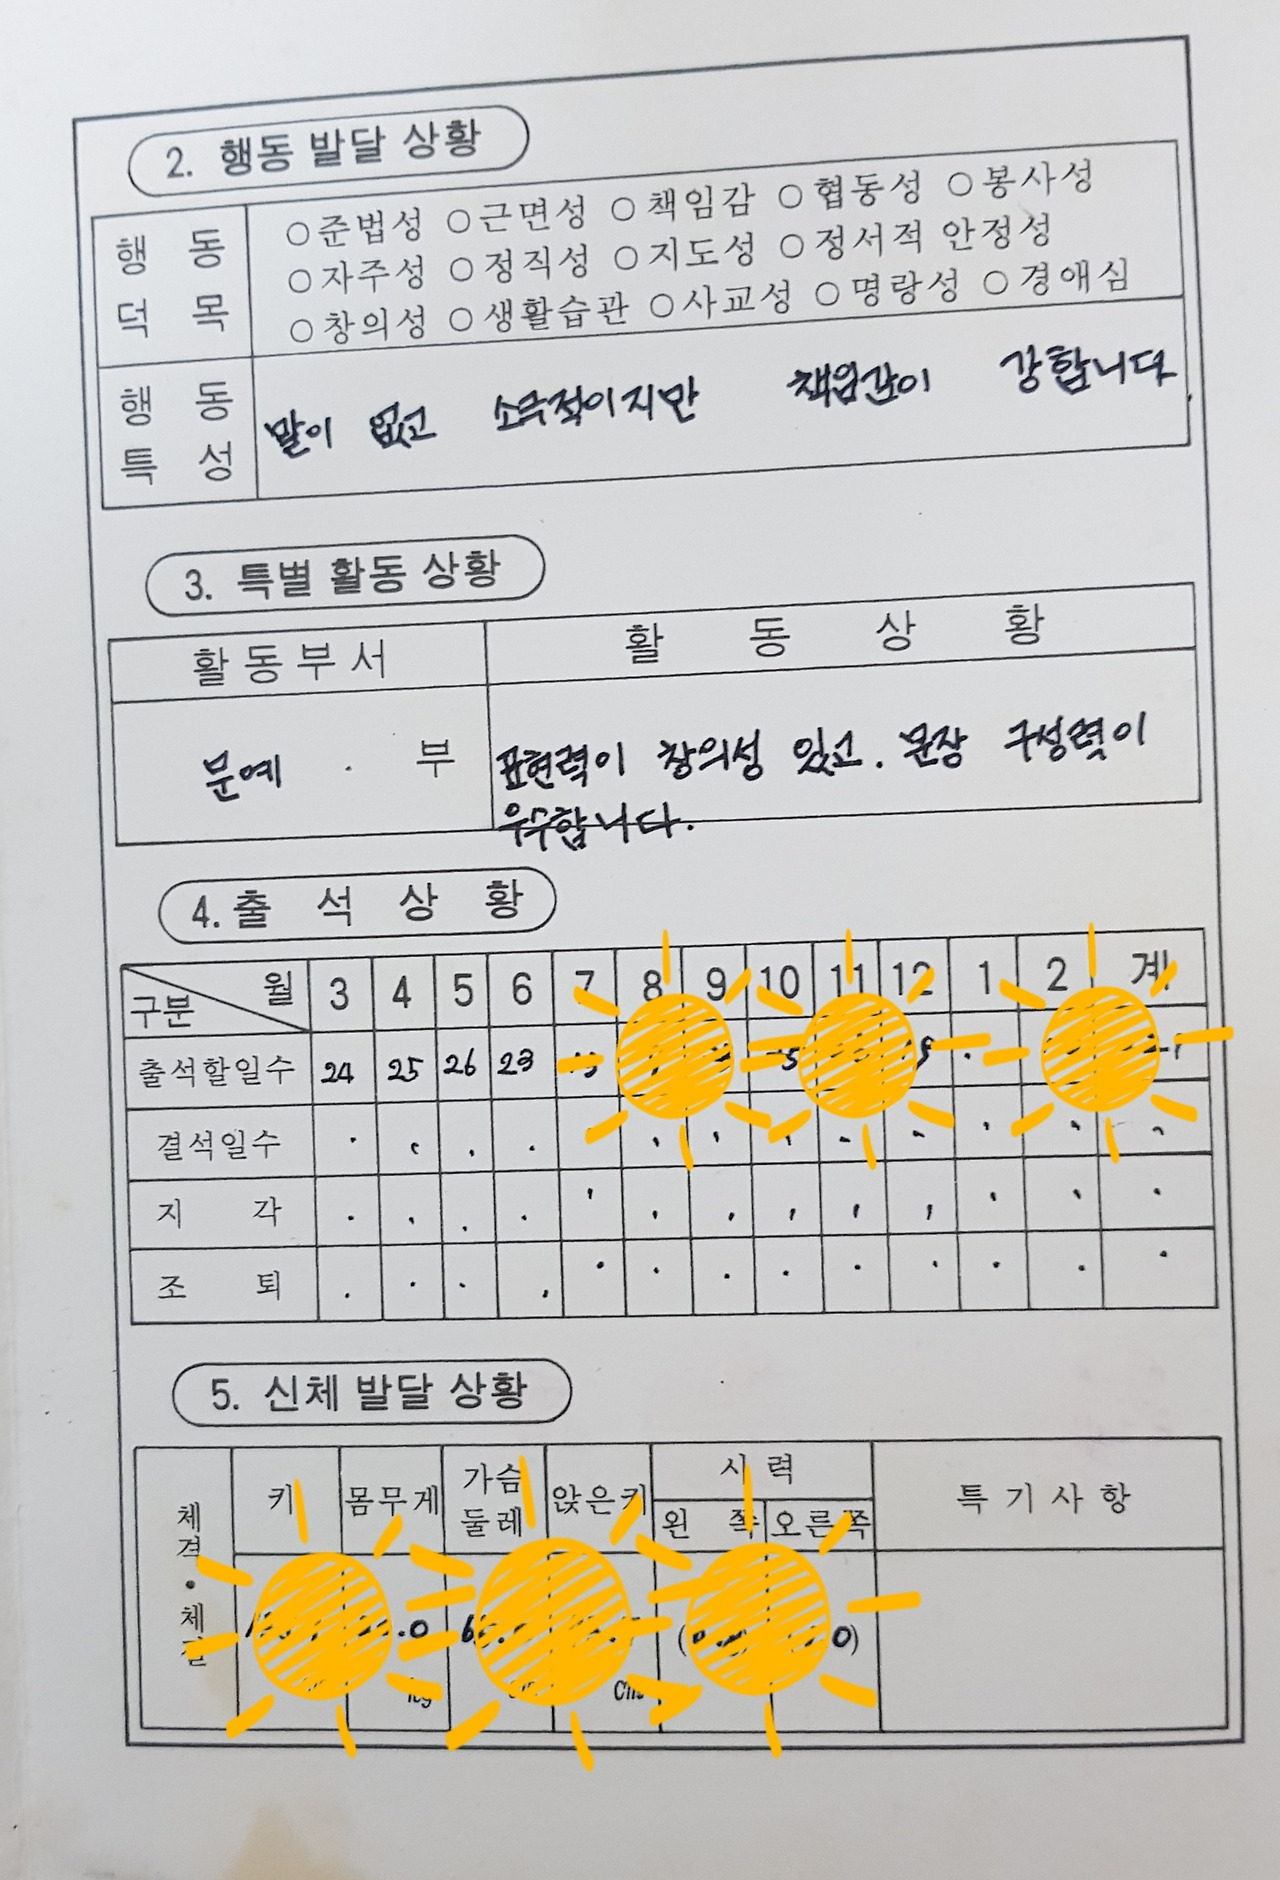 2. 행동 발달 상황
행 동 덕 목
○준법성 ○근면성 ○책임감 ○협동성 ○봉사성
○자주성 ○정직성 ○지도성 ○정서적 안정성
○창의성 ○생활습관 ○사교성 ○명랑성 ○경애심
행 동 특 성
말이 없고 소극적이지만 책임감이 강합니다.
3. 특별 활동 상황
활동부서 활 동 상 황
문예 부
표현력이 창의성 있고. 문장 구성력이
우수합니다.
4. 출 석 상 황
구분 월 3 4 5 6 7 8 9 10 11 12 1 2 계
출석할일수 24 25 26 23
결석일수
지 각
조 퇴
5. 신체 발달 상황
체격·체질
키 몸무게 가슴둘레 앉은키 시 력 특기사항
왼 쪽 오른쪽
kg